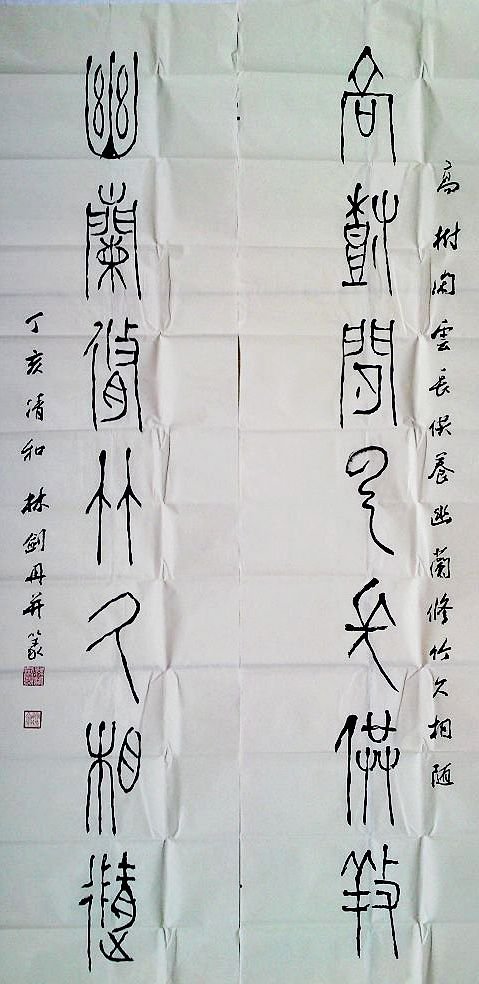 高樹闲雲長保養幽蘭修竹久相随
高樹閒雲長保養
幽蘭脩竹久相隨
丁亥清和林劍丹并篆